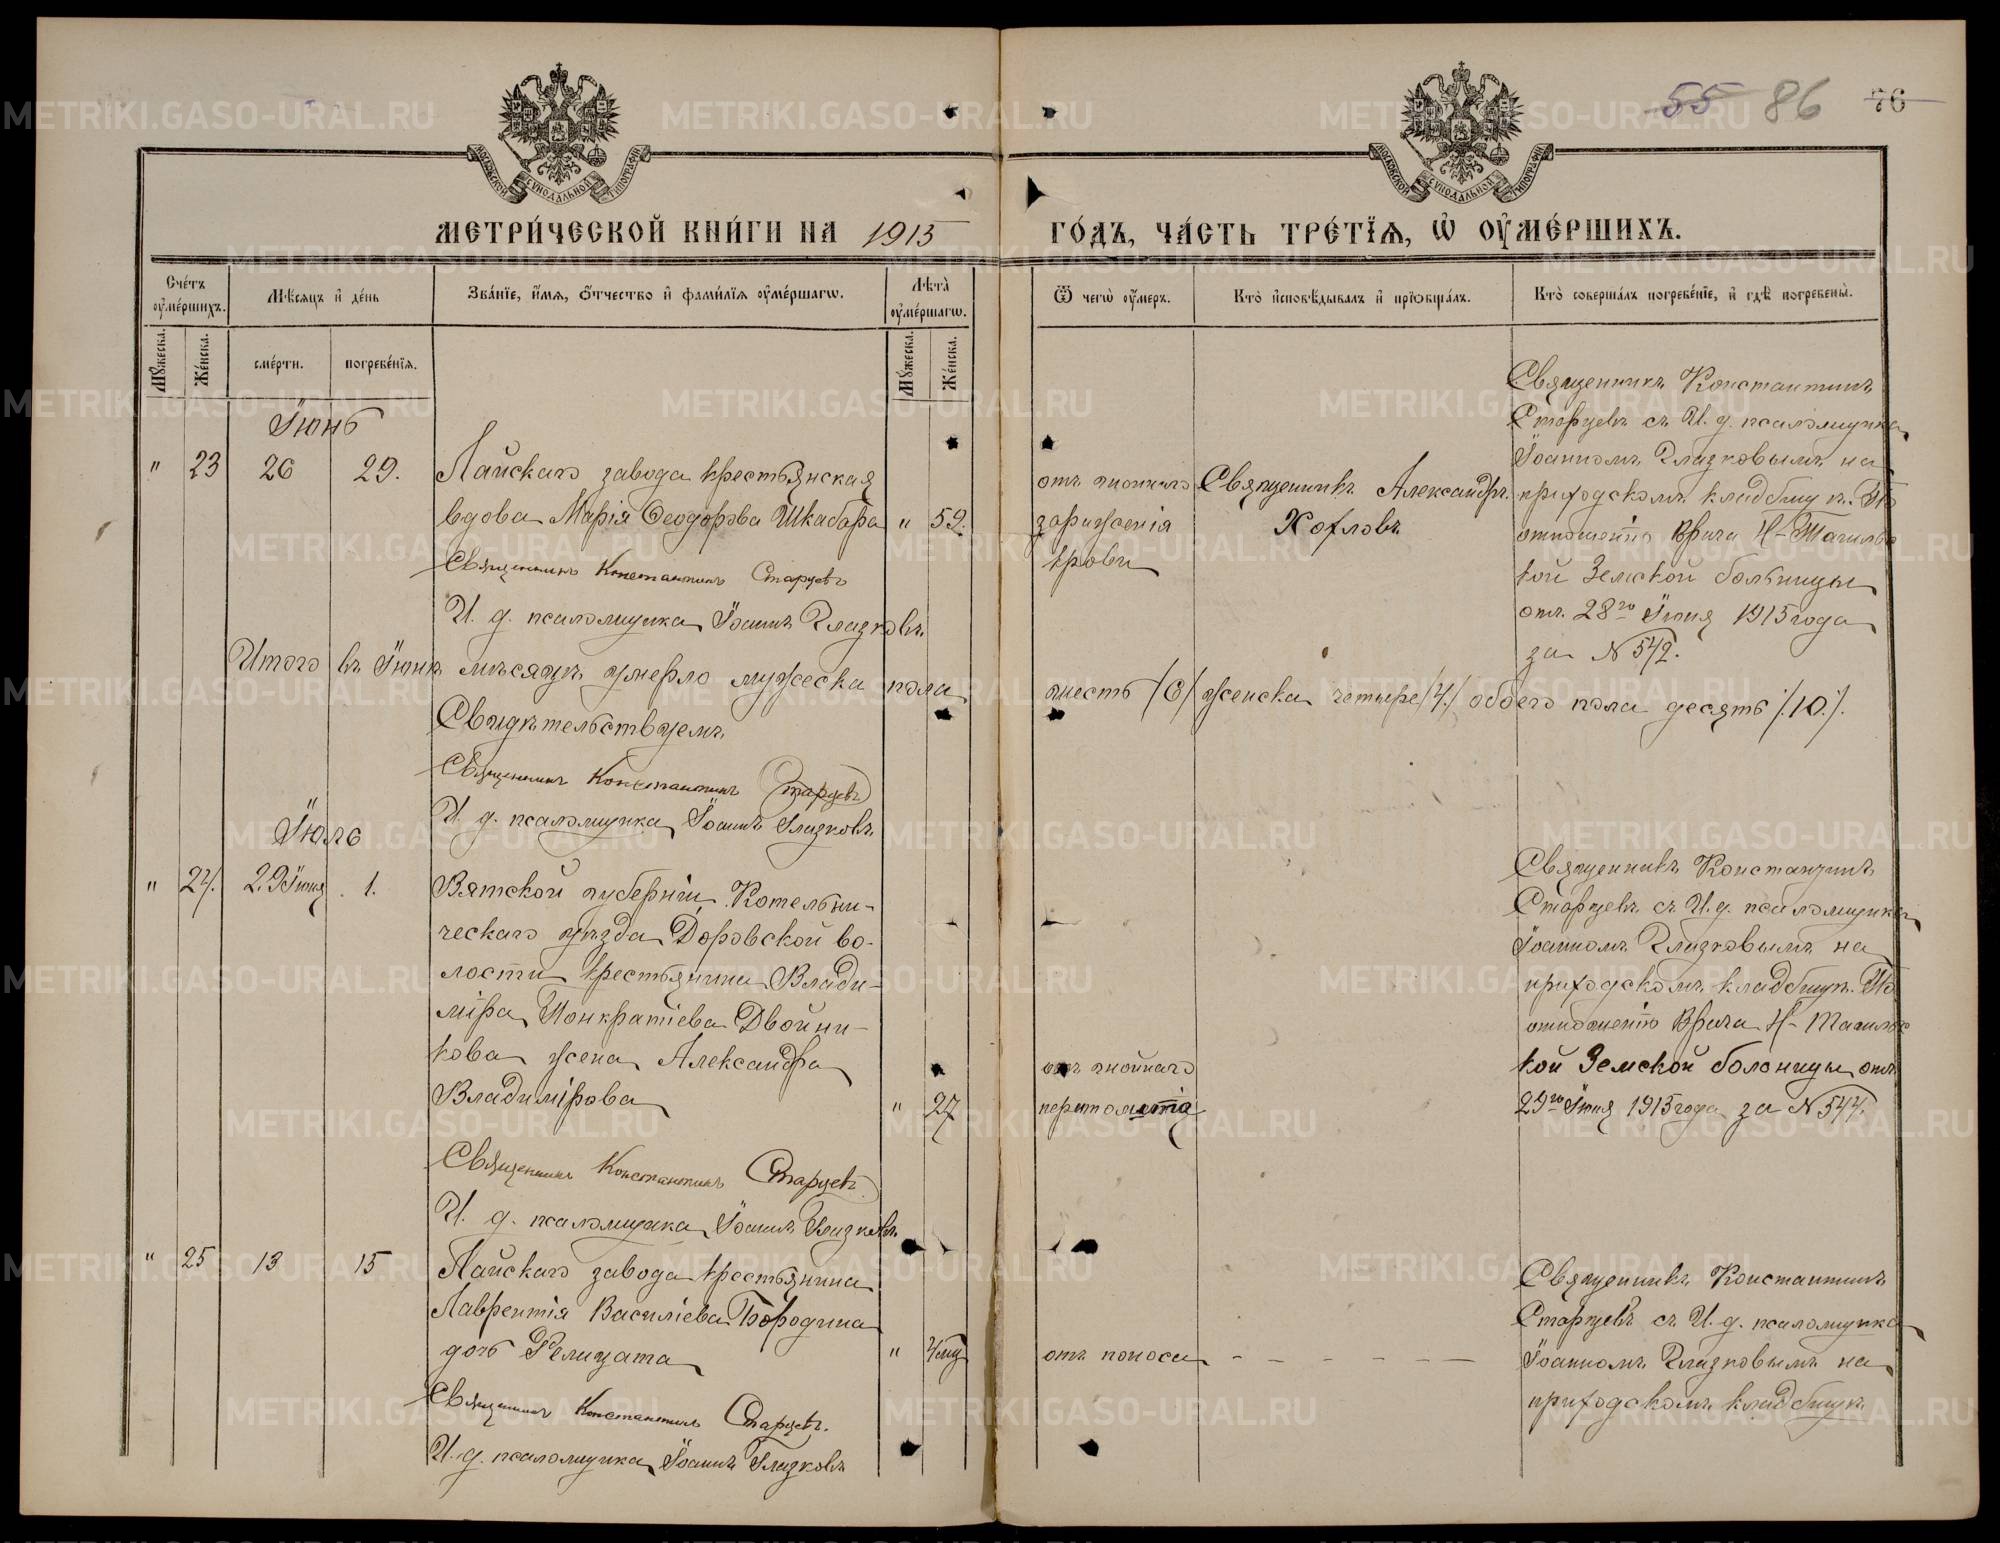 55 86 76
МОСКОВСКОЙ СУНОДАЛЬНОЙ ТИПОГРАФІИ
МОСКОВСКОЙ СУНОДАЛЬНОЙ ТИПОГРАФІИ
МЕТРИ́ЧЕСКОЙ КНИ́ГИ НА 1915 ГО́ДЪ, ЧА́СТЬ ТРЕ́ТІЯ, Ѡ ОУ҆МЕ́РШИХЪ.
Сче́тъ оу҆ме́ршихъ.
Мѣ́сяцъ и҆ де́нь
Зва́нїе, и҆́мя, ѻ҆́тчество и҆ фами́лїя оу҆ме́ршагѡ.
Лѣ́та оу҆ме́ршагѡ.
Ѿ чегѡ̀ оу҆́меръ.
Кто̀ и҆сповѣ́дывалъ и҆ прїѡбща́лъ.
Кто̀ соверша́лъ погребе́нїе, и҆ гдѣ̀ погребены̀.
Мꙋ́жеска.
Же́нска.
сме́рти.
погребе́нїя.
Мꙋ́жеска.
Же́нска.
Іюнь
" 23 26 29.
Лайскаго завода крестьянская
вдова Марія Ѳеодорова Шкабара " 59.
Священникъ Константинъ Старцевъ
И. д. псаломщика Іоаннъ Глазковъ
отъ гнойнаго
зараженія
крови
Священникъ Александръ
Хохловъ
Священникъ Константинъ
Старцевъ съ И. д. псаломщика
Іоанномъ Глазковымъ на
приходскомъ кладбищѣ. По
отношенію Врача Н-Тагильс
кой Земской больницы
отъ 28го Іюня 1915 года
за N 542.
Итого въ Іюнѣ мѣсяцѣ умерло мужеска пола шесть /6/ женска четыре /4/ обоего пола десять /10./.
Свидѣтельствуемъ
Священникъ Константинъ Старцевъ
И. д. псаломщика Іоаннъ Глазковъ
Іюль
" 24. 29 Іюня 1.
Вятской губерніи, Котельни-
ческаго уѣзда Доровской во-
лости крестьянина Влади-
міра Понкратіева Двойни-
кова жена Александра
Владимірова " 27
Священникъ Константинъ Старцевъ
И. д. псаломщика Іоаннъ Глазковъ
отъ гнойнаго
перитонита
Священникъ Константинъ
Старцевъ съ И. д. псаломщика
Іоанномъ Глазковымъ на
приходскомъ кладбищѣ. По
отношенію Врача Н-Тагильс
кой Земской больницы отъ
29го Іюня 1915 года за N 544.
" 25 13 15
Лайскаго завода крестьянина
Лаврентія Василіева Бородина
дочь Фелицата " 4 мц
Священникъ Константинъ Старцевъ.
И. д. псаломщика Іоаннъ Глазковъ
отъ поноса - - - - - -
Священникъ Константинъ
Старцевъ съ И. д. псаломщика
Іоанномъ Глазковымъ на
приходскомъ кладбищѣ
METRIKI.GASO-URAL.RU